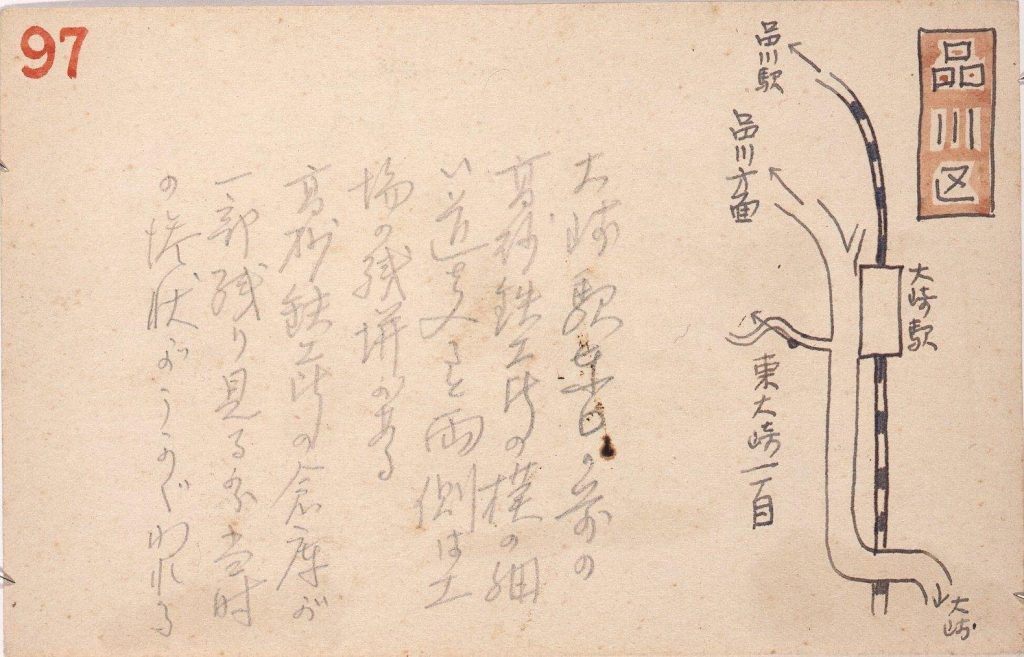 97
品川区
品川駅
品川方面
大崎駅
東大崎一丁目
大崎
大崎駅 前の
高砂鉄工所の横の細
い道を入ると両側は工
場の残塀がある
高砂鉄工所の倉庫が
一部残り見る 当時
の惨状がうかがわれる